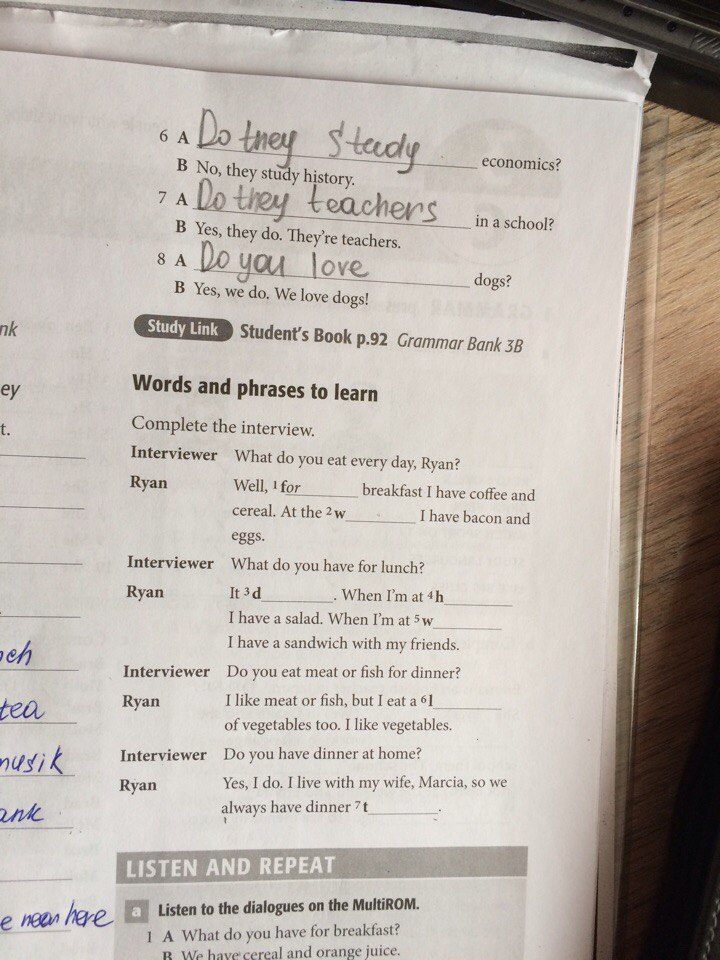 6 A Do they Study economics?
B No, they study history.
7 A Do they teachers in a school?
B Yes, they do. They're teachers.
8 A Do you love dogs?
B Yes, we do. We love dogs!
Study Link Student's Book p.92 Grammar Bank 3B
Words and phrases to learn
Complete the interview.
Interviewer What do you eat every day, Ryan?
Ryan Well, 1 for________ breakfast I have coffee and
cereal. At the 2 w________ I have bacon and
eggs.
Interviewer What do you have for lunch?
Ryan It 3 d________. When I'm at 4 h________
I have a salad. When I'm at 5 w________
I have a sandwich with my friends.
Interviewer Do you eat meat or fish for dinner?
Ryan I like meat or fish, but I eat a 6 l________
of vegetables too. I like vegetables.
Interviewer Do you have dinner at home?
Ryan Yes, I do. I live with my wife, Marcia, so we
always have dinner 7 t________.
LISTEN AND REPEAT
a Listen to the dialogues on the MultiROM.
1 A What do you have for breakfast?
B We have cereal and orange juice.
nk
ey
t.
tea
musik
ank
here